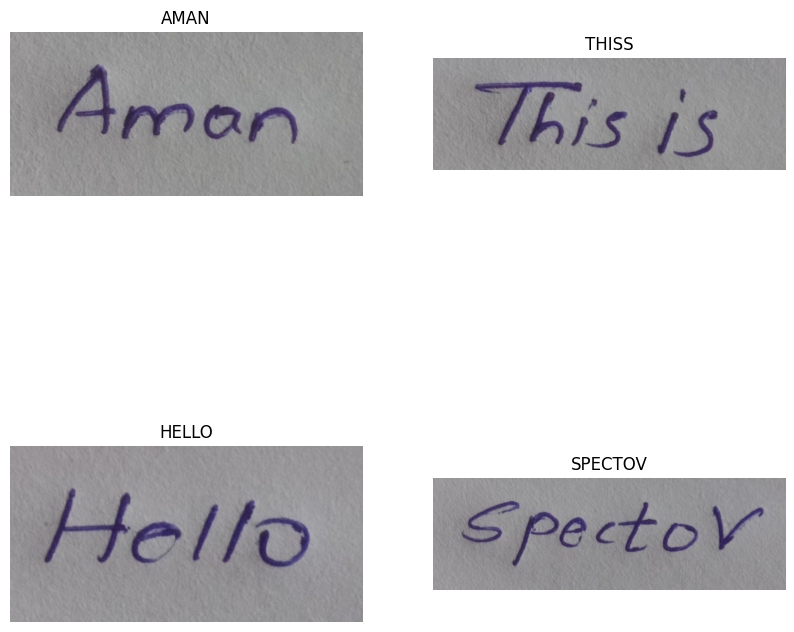 AMAN
Aman
THISS
This is
HELLO
Hello
SPECTOV
SpectoV